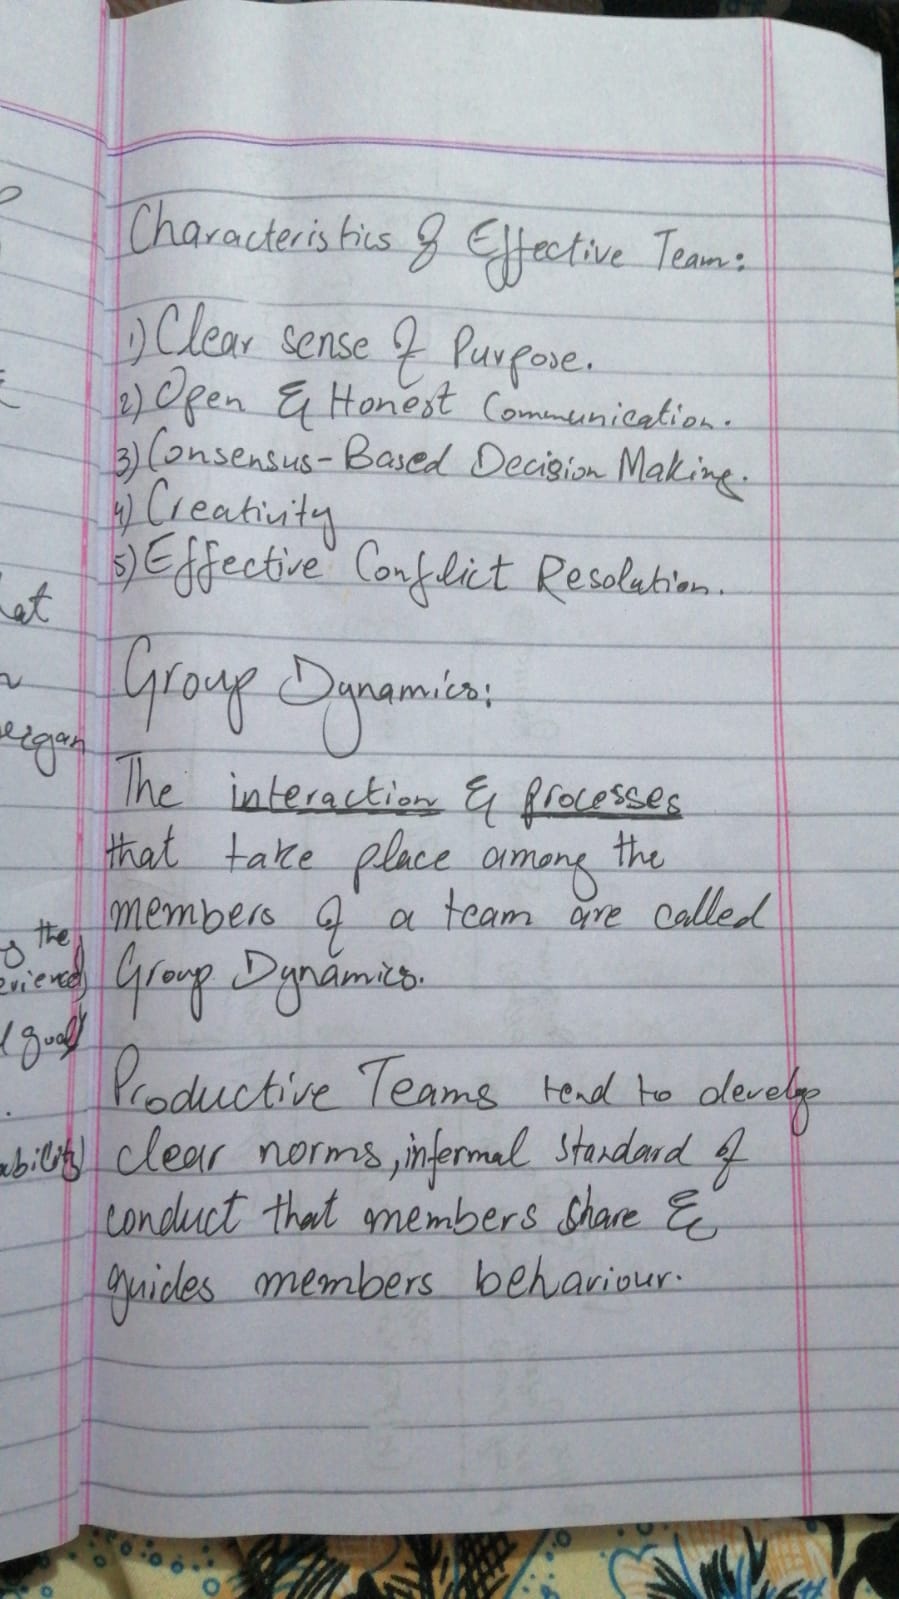 Characteristics of Effective Team:
1) Clear sense of Purpose.
2) Open & Honest Communication.
3) Consensus-Based Decision Making.
4) Creativity
5) Effective Conflict Resolution.
Group Dynamics:
The interaction & processes
that take place among the
members of a team are called
Group Dynamics.
Productive Teams tend to develop
clear norms, informal standard of
conduct that members share &
guides members behaviour.
the